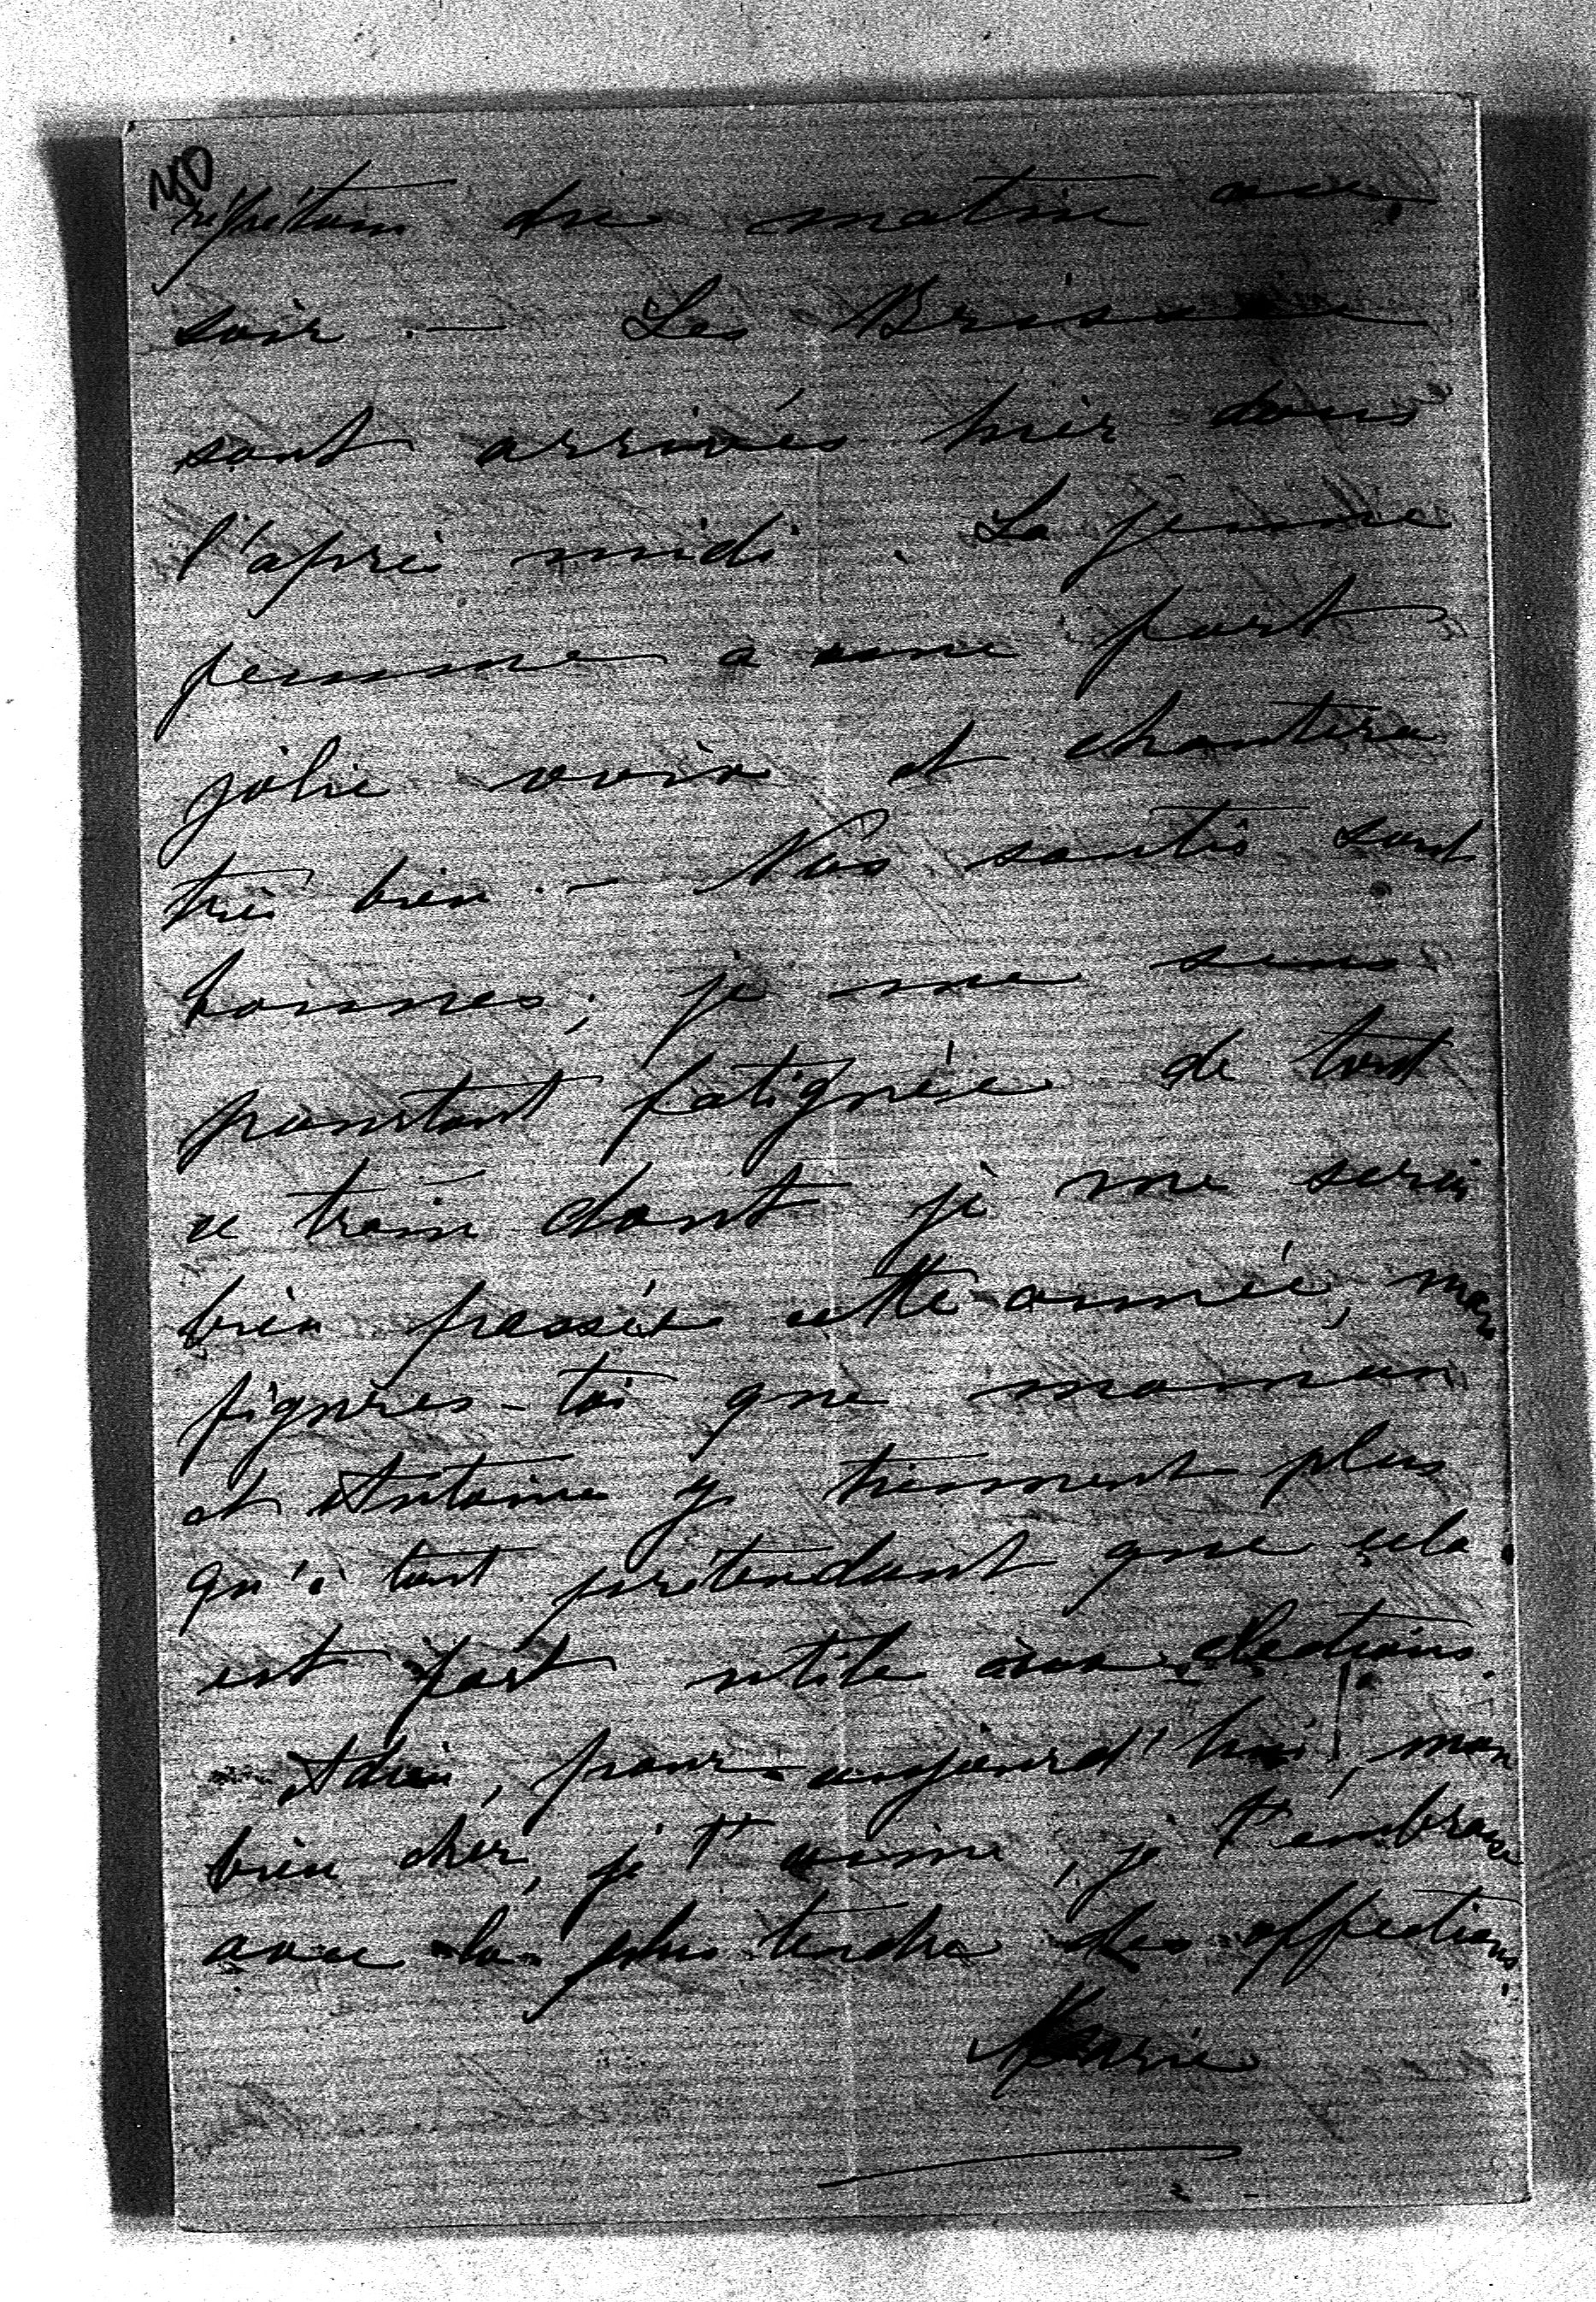 MD
répétons du matin au
soir. — Les
sont arrivés hier dans
l'après midi. La jeune
femme a une fort
jolie voix et chantera
très bien. — Nos santés sont
bonnes; je me sens
pourtant fatiguée de tout
ce train dont je me serais
bien passée cette année, mais
figures-toi que maman
et Antoine y tiennent plus
qu'à tout prétendant que cela
est fort utile aux élections.
Adieu, pour aujourd'hui, mon
bien cher, je t'aime, je t'embrasse
avec la plus tendre des affections.
Marie